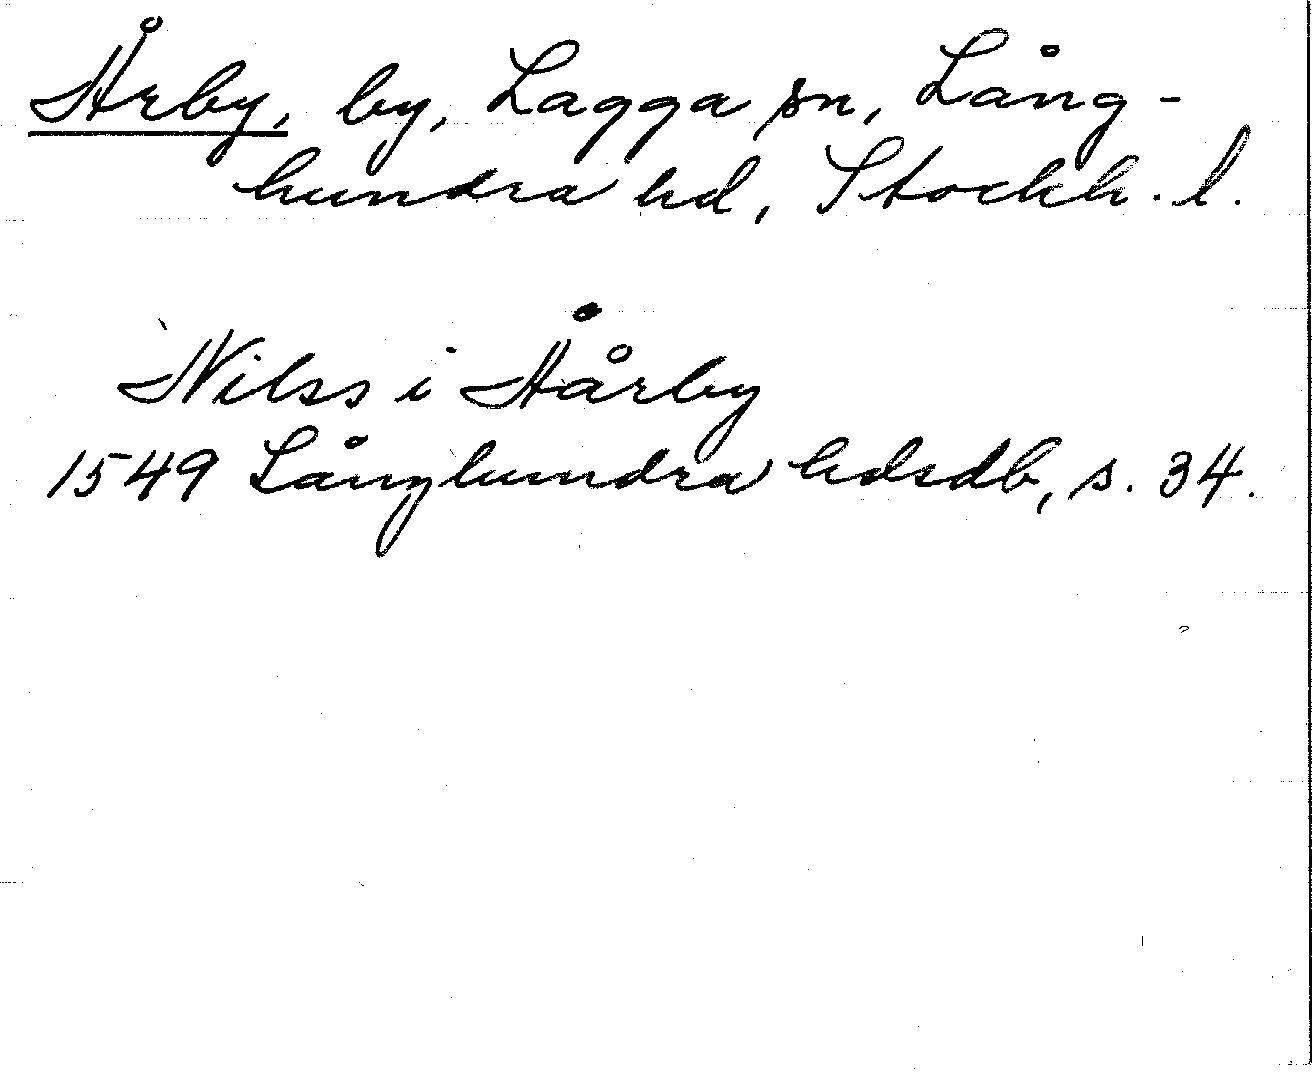 Årby, by, Lagga sn, Lång-
hundra hd, Stockh. l.
Nilss i Åårby
1549 Långhundra hdsdb, s. 34.